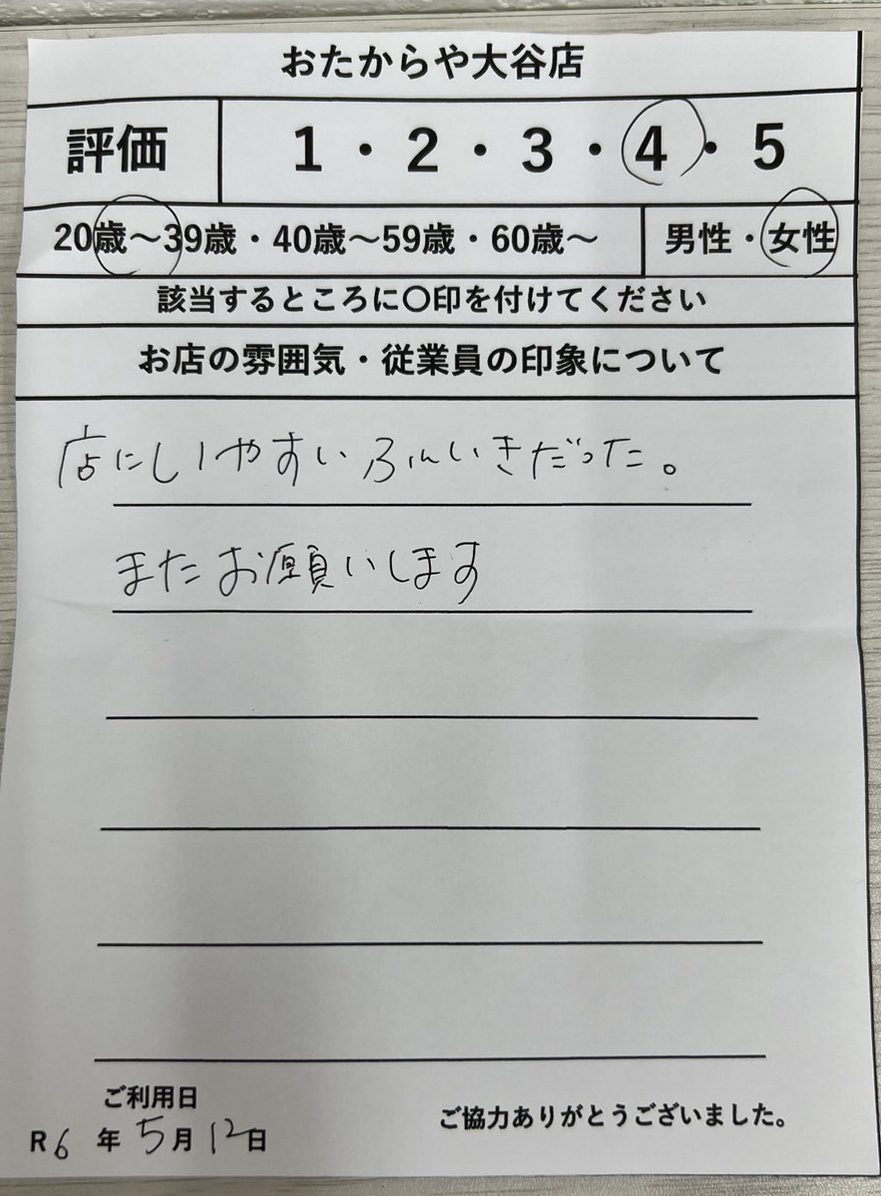 おたからや大谷店
評価 1・2・3・4・5
20歳～39歳・40歳～59歳・60歳～ 男性・女性
該当するところに〇印を付けてください
お店の雰囲気・従業員の印象について
店にしいやすいふんいきだった。
またお願いします
ご利用日
R6年5月12日
ご協力ありがとうございました。